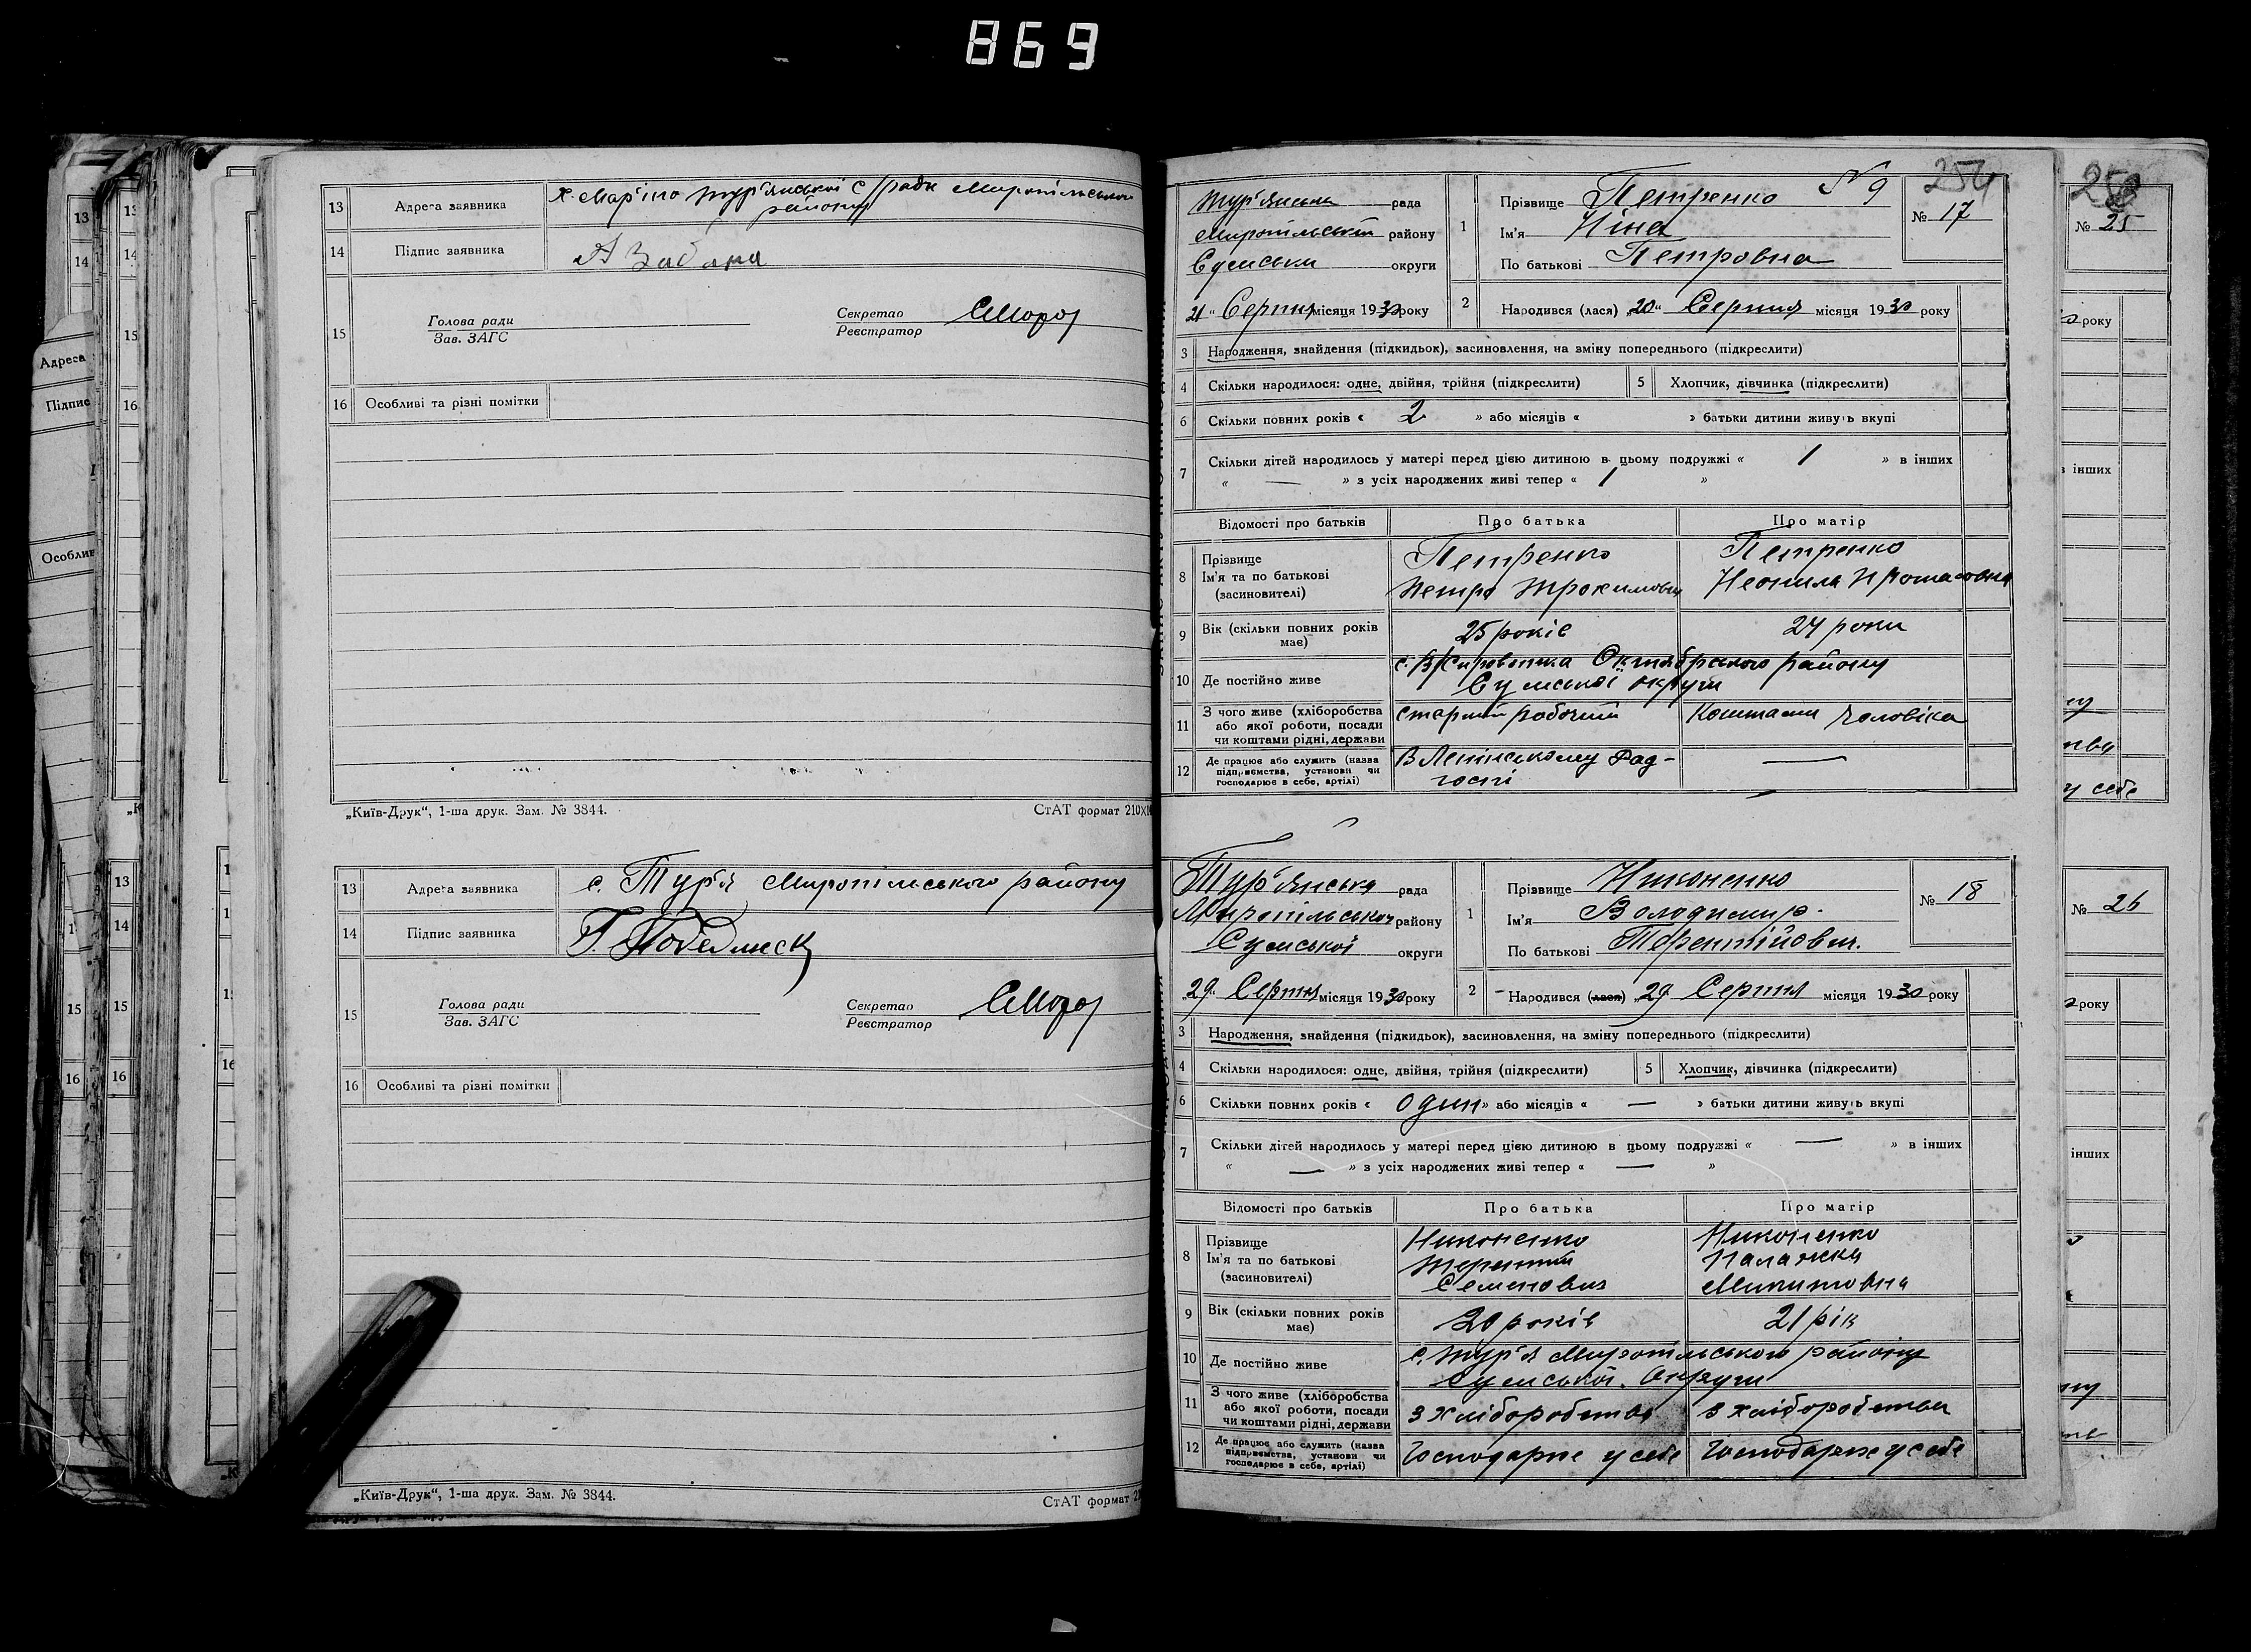 869
13 Адреса заявника х. Мар'їно Тур'янської с/ради Миропільського
району
14 Підпис заявника А Забара
15 Голова ради
Зав. ЗАГС
Секретар
Реєстратор
СМороз
16 Особливі та різні помітки
„Київ-Друк“, 1-ша друк. Зам. № 3844. СтАТ формат 210х
13 Адреса заявника с. Тур'я Миропільського району
14 Підпис заявника
15 Голова ради
Зав. ЗАГС
Секретар
Реєстратор
СМороз
16 Особливі та різні помітки
„Київ-Друк“, 1-ша друк. Зам. № 3844. СтАТ формат 2
254
Тур'янська рада
Миропільській району
Сумськи округи
21 “ Серпня місяця 1930 року
1 Прізвище Петренко N 9
Ім'я Ніна
По батькові Петровна
№ 17
2 Народився (лася) „20“ Серпня місяця 1930 року
3 Народження, знайдення (підкидьок), засиновлення, на зміну попереднього (підкреслити)
4 Скільки народилося: одне, двійня, трійня (підкреслити) 5 Хлопчик, дівчинка (підкреслити)
6 Скільки повних років « 2 » або місяців « » батьки дитини живуть вкупі
7 Скільки дітей народилось у матері перед цією дитиною в цьому подружжі « 1 » в інших
« — » з усіх народжених живі тепер « 1 »
Відомості про батьків Про батька Про матір
8 Прізвище
Ім'я та по батькові
(засиновителі)
Петренко
Петро Трохимович
Петренко
Неонила
9 Вік (скільки повних років
має)
25 років 24 роки
10 Де постійно живе с. В/Сироватка Октябрського району
Сумської округи
11 З чого живе (хліборобства
або якої роботи, посади
чи коштами рідні, держави
старший робочий Коштами чоловіка
12 Де працює або служить (назва
підприємства, установи чи
господарює в себе, артілі)
В Ленінському Рад-
госпі
—
Тур'янська рада
Миропільської району
Сумської округи
„29“ Серпня місяця 1930 року
1 Прізвище Никоненко
Ім'я Володимир.
По батькові Терентійович.
№ 18
2 Народився (лася) „29 Серпня місяця 1930 року
3 Народження, знайдення (підкидьок), засиновлення, на зміну попереднього (підкреслити)
4 Скільки народилося: одне, двійня, трійня (підкреслити) 5 Хлопчик, дівчинка (підкреслити)
6 Скільки повних років « один » або місяців « — » батьки дитини живуть вкупі
7 Скільки дітей народилось у матері перед цією дитиною в цьому подружжі « — » в інших
« — » з усіх народжених живі тепер « — »
Відомості про батьків Про батька Про матір
8 Прізвище
Ім'я та по батькові
(засиновителі)
Никоненко
Терентій
Семенович
Никоненко
Палажка
Микитовна
9 Вік (скільки повних років
має)
20 років 21 рік
10 Де постійно живе с. Тур'я Миропільського району
Сумської. Округи
11 З чого живе (хліборобства
або якої роботи, посади
чи коштами рідні, держави
з хліборобства з хліборобства
12 Де працює або служить (назва
підприємства, установи чи
господарює в себе, артілі)
Господарює у себе Господарює у себе
№ 25
року
в інших
у себе
№ 26
року
інших